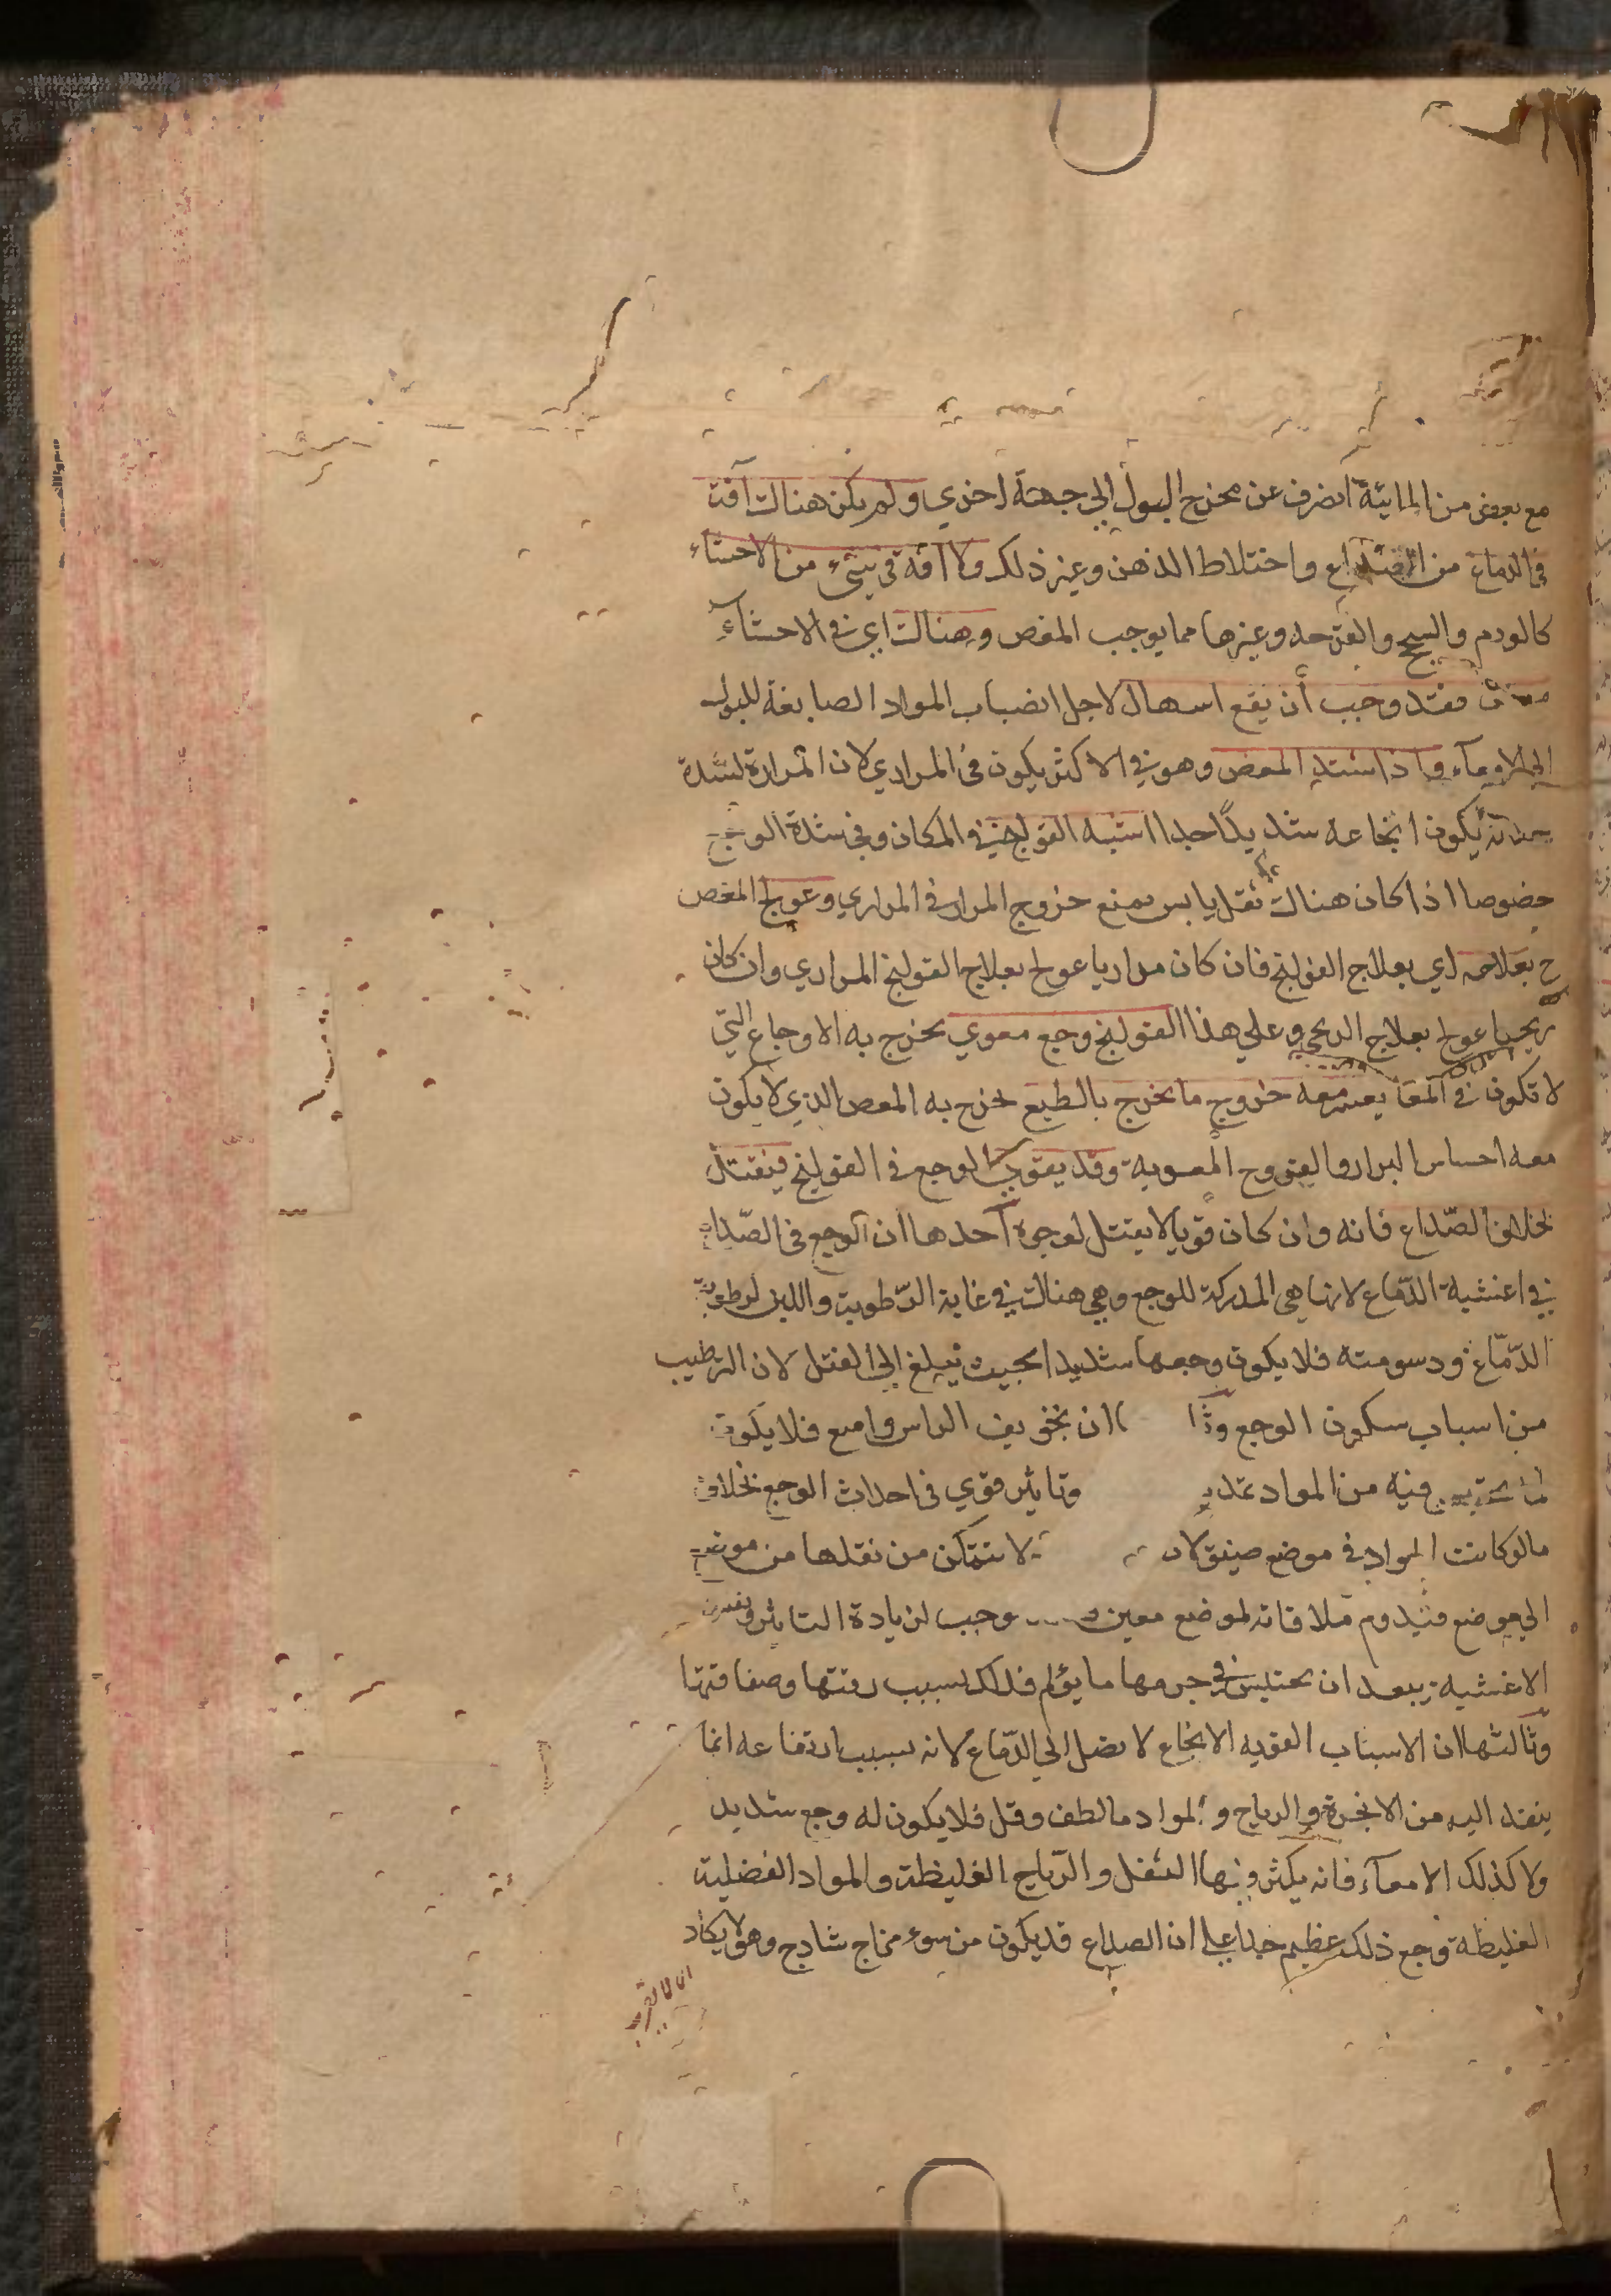 مع بعض من المائية انصرف عن مخرج البول الي جهة اخري ولم يكن هناك آفة
في الدماغ من الصداع واختلاط الذهن وغير ذلك ولا آفة في شيء من الاحشاء
كالورم والسحج والقرحه وغيرها مما يوجب المغص وهناك اي في الاحشآء
فقد وجب أن يقع اسهال لاجل انصباب المواد الصابغة للبول
الي الامعآء واذا اشتد المغص وهو في الاكثر يكون في المراري لان المرارة لشدة
يكون ايجاعه شديدًا جدا اشبه القولنج في المكان وفي شدة الوجع
خصوصا اذا كان هناك ثقل يابس يمنع خروج المرار في المراري وعولج المغص
ح بعلاجه اي بعلاج القولنج فان كان مراريا عولج بعلاج القولنج المراري وان كان
ريحيا عولج بعلاج الريحي وعلي هذا القولنج وجع معوي يخرج به الاوجاع التي
لا تكون في المعا يعسر معه خروج ما يخرج بالطبع يخرج به المغص الذي لا يكون
معه احساس البراز والقروح المعوية وقد يقوي الوجع في القولنج فيقتل
بخلاف الصّداع فانه وان كان قويا لا يقتل لوجوه آحدها ان الوجع في الصّداع
في اغشية الدّماغ لانها هي المدركة للوجع وهي هناك في غاية الرّطوبة واللين لرطوبة
الدّماغ ودسومته فلا يكون وجعها شديدا بحيث يبلغ الي القتل لان الترطيب
من اسباب سكون الوجع وثا ان تجويف الراس واسع فلا يكون
لما يحتبس فيه من المواد تمديد وتاثير قوي في احداث الوجع بخلاف
مالو كانت المواد في موضع ضيق لا تتمكن من نقلها من موضع
الي موضع فيدوم ملاقاته لموضع معين وجب لزيادة التاثير
الاغشيه يبعد ان يحتبس في جرمها ما يؤلم فلذلك بسبب رقتها وصفاقتها
وثالثها ان الاسباب القويه الايجاع لا تصل الي الدّماغ لانه بسبب ارتفاعه انما
ينفذ اليه من الابخرة والرياح والمواد ما لطف وقل فلا يكون له وجع شديد
ولا كذلك الامعآء فانه يكثر فيها الثفل والرّياح الغليظة والمواد الفضلية
الغليظة فوجع ذلك عظيم جدا علي ان الصداع قد يكون من سوء مزاج ساذج وهو لا يكاد